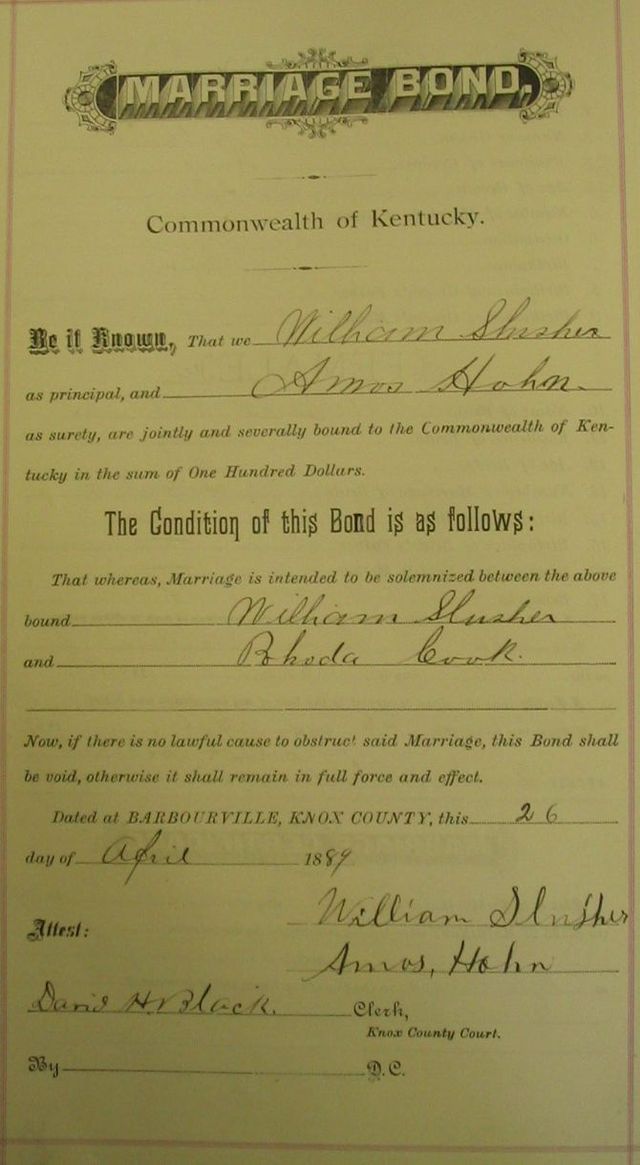 MARRIAGE BOND.
Commonwealth of Kentucky.
Be it Known, That we William Slusher
as principal, and Amos Hohn.
as surety, are jointly and severally bound to the Commonwealth of Ken-
tucky in the sum of One Hundred Dollars.
The Condition of this Bond is as follows:
That whereas, Marriage is intended to be solemnized between the above
bound William Slusher
and Rhoda Cook.
Now, if there is no lawful cause to obstruct said Marriage, this Bond shall
be void, otherwise it shall remain in full force and effect.
Dated at BARBOURVILLE, KNOX COUNTY, this 26
day of April 1889
William Slusher
Attest:
Amos, Hohn
David H. Black. Clerk,
Knox County Court.
By D.C.